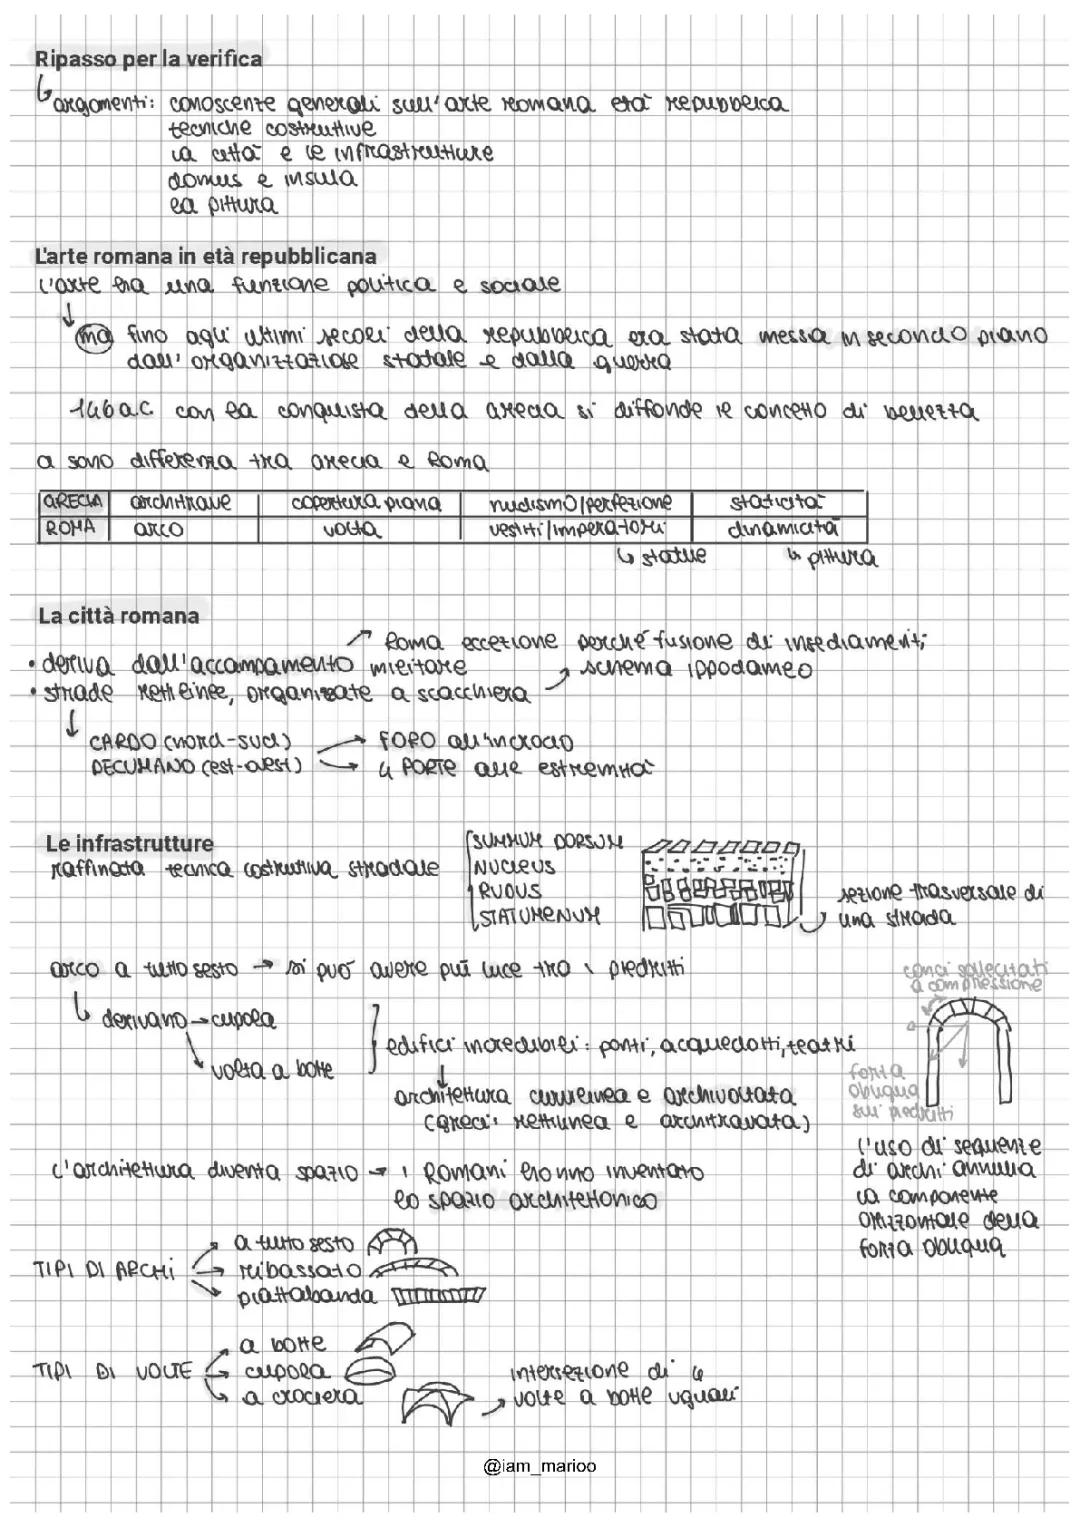 Ripasso per la verifica
argomenti: conoscenze generali sull'arte romana età repubblica
tecniche costruttive
la città e le infrastrutture
domus e insula
la pittura
L'arte romana in età repubblicana
l'arte ha una funzione politica e sociale
ma fino agli ultimi secoli della repubblica era stata messa in secondo piano
dall'organizzazione statale e dalla guerra
146 a.C. con la conquista della Grecia si diffonde il concetto di bellezza
ci sono differenza tra Grecia e Roma
GRECIA architrave copertura piana nudismo/perfezione staticità
ROMA arco volta vestiti/imperatori dinamicità
statue pittura
La città romana
Roma eccezione perché fusione di insediamenti
• deriva dall'accampamento militare schema ippodameo
• strade rettilinee, organizzate a scacchiera
CARDO (nord-sud) FORO all'incrocio
DECUMANO (est-ovest) 4 PORTE alle estremità
Le infrastrutture
raffinata tecnica costruttiva stradale
SUMMUM DORSUM
NUCLEUS
RUDUS
STATUMENUM
sezione trasversale di
una strada
arco a tutto sesto → si può avere più luce tra i piedritti
derivano → cupola
volta a botte
edifici incredibili: ponti, acquedotti, teatri
architettura curvilinea e archivoltata
(greci: rettilinea e architravata)
conci sollecitati
a compressione
forza
obliqua
sui piedritti
l'uso di sequenze
di archi annulla
la componente
orizzontale della
forza obliqua
l'architettura diventa spazio → i Romani hanno inventato
lo spazio architettonico
TIPI DI ARCHI
a tutto sesto
ribassato
piattabanda
TIPI DI VOLTE
a botte
cupola
a crociera
intersezione di 4
volte a botte uguali
@iam_marioo